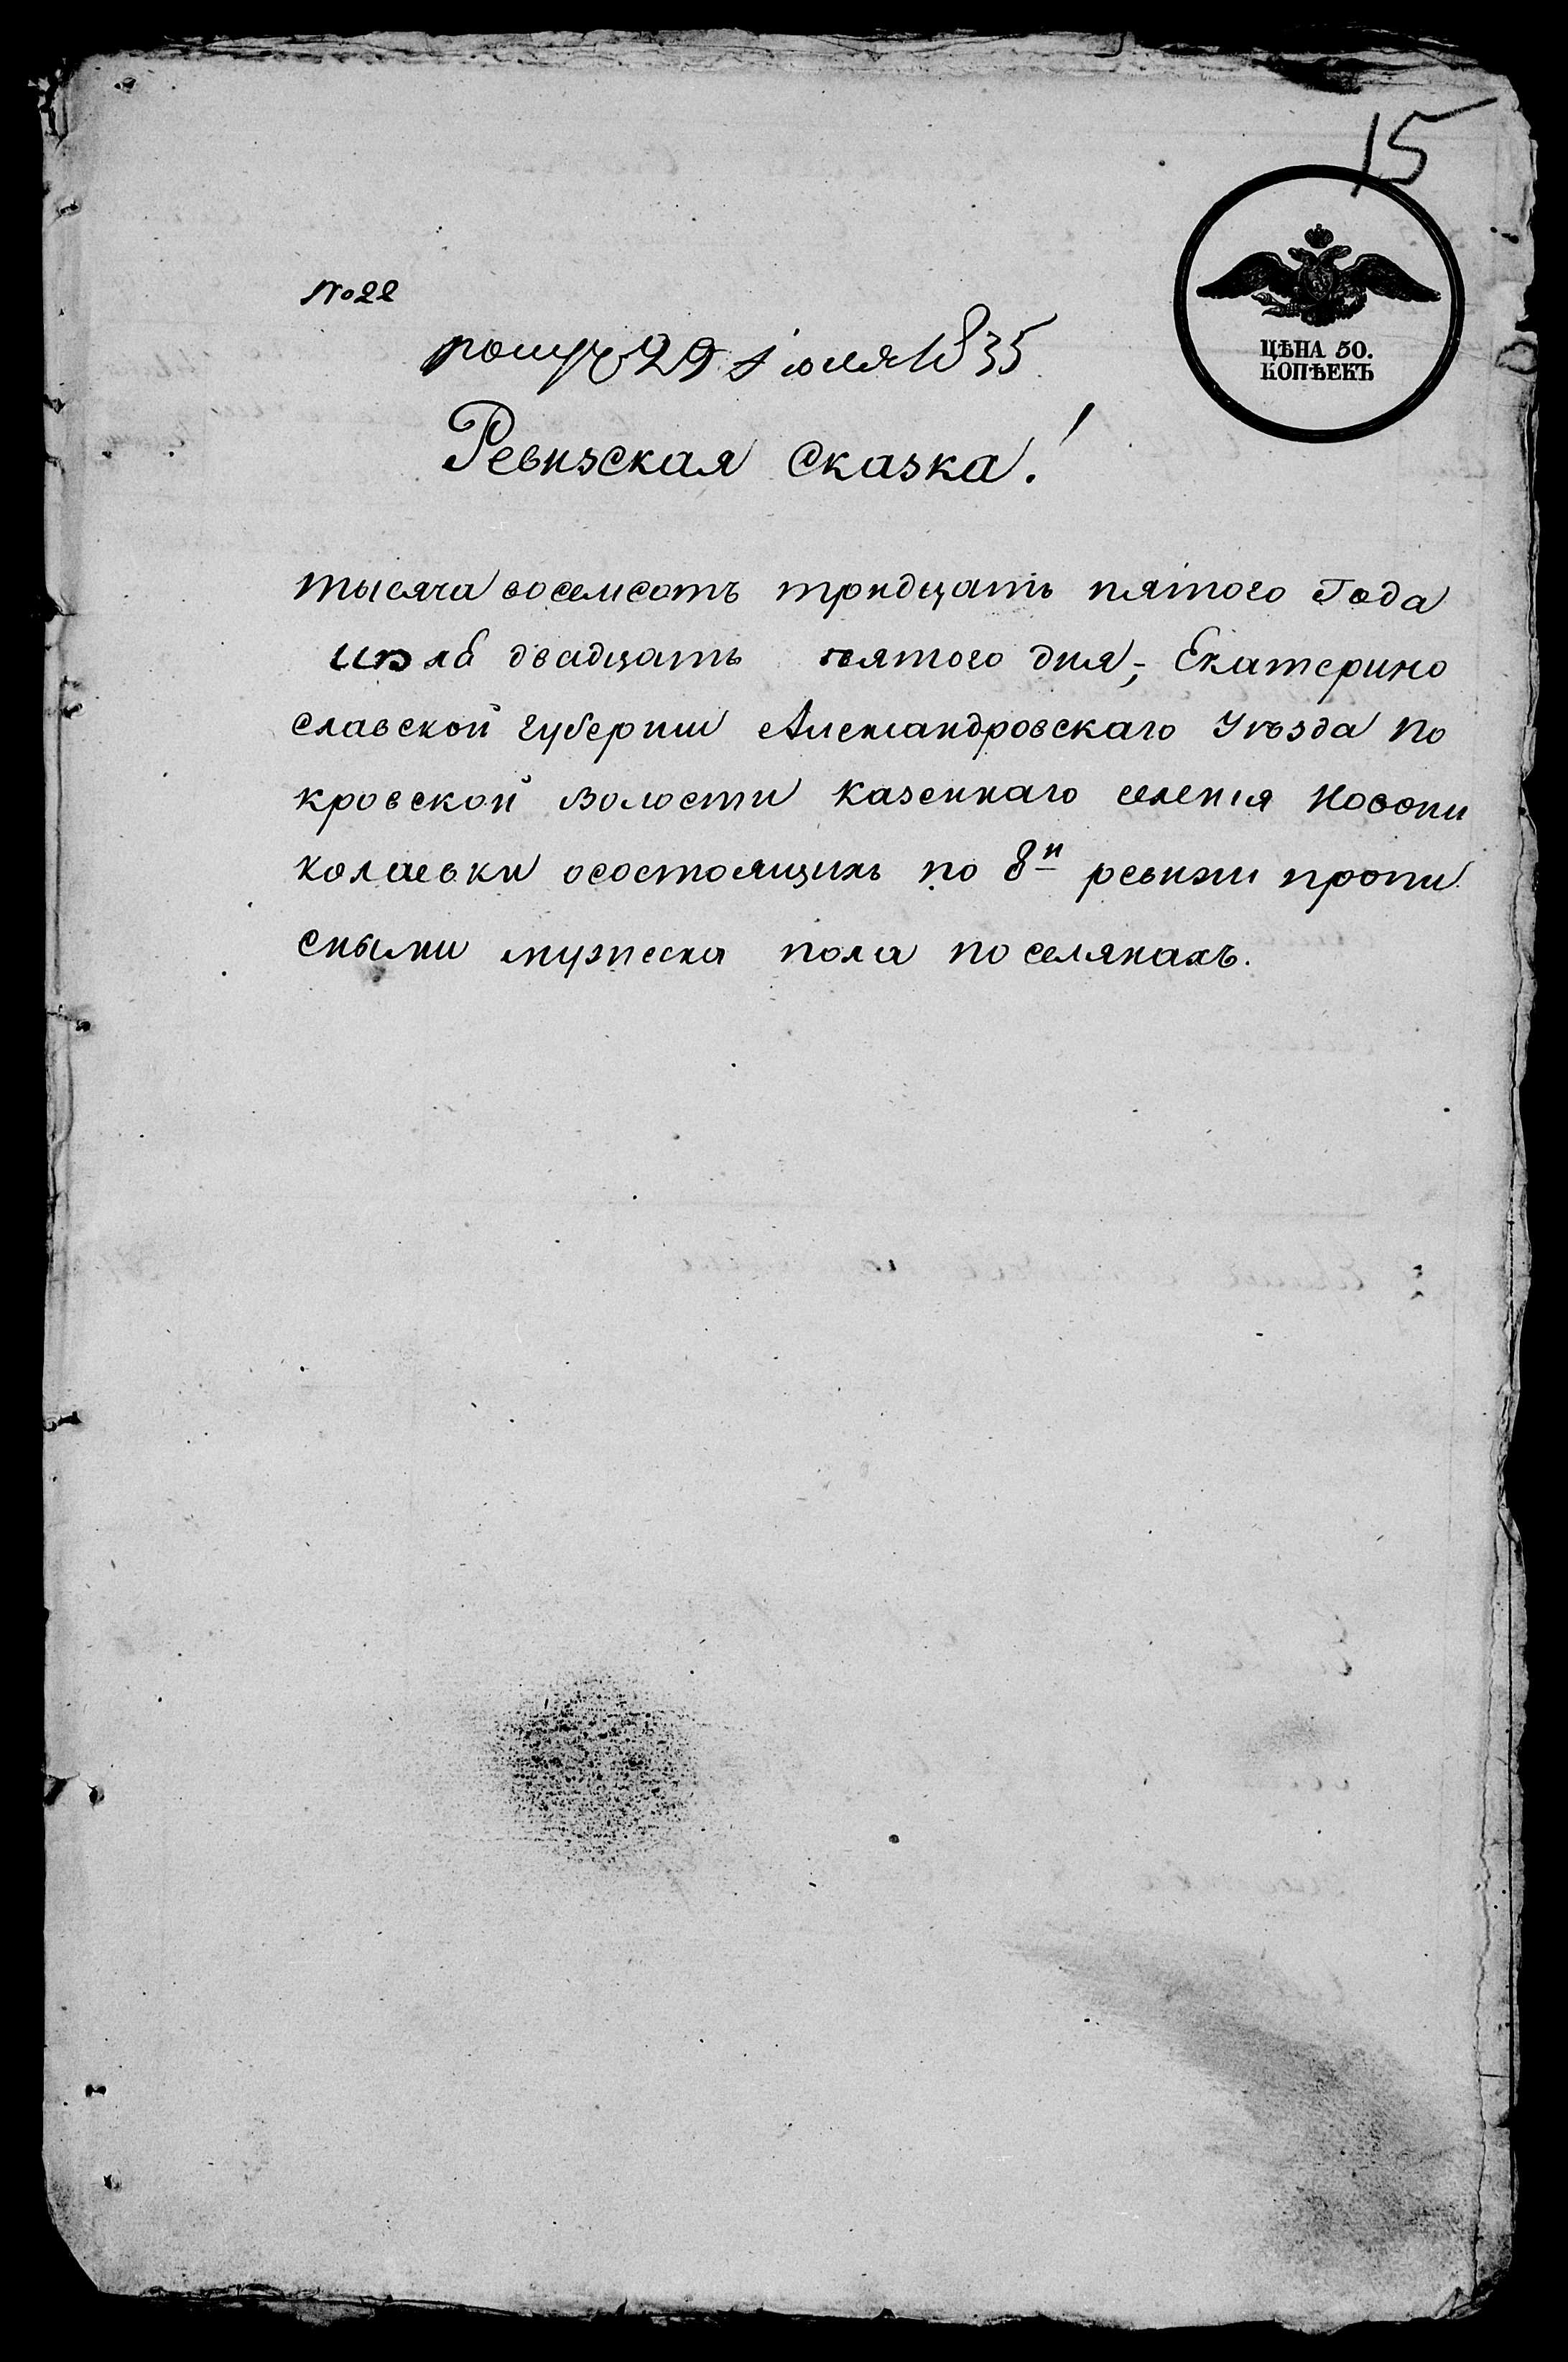 15
ЦѢНА 50.
КОПѢЕКЪ
№22
получ 29 Іюля 1835
Ревизская Сказка!
тысяча восемсотъ тридцать пятого Года
июля двадцать пятого дня,- Екатерино
славской губернии Александровскаго Уѣзда По
кровской Волости казеннаго селенія Новони
колаевки осостоящихъ по 8й ревизии пропи
сными мужеска пола поселянахъ.